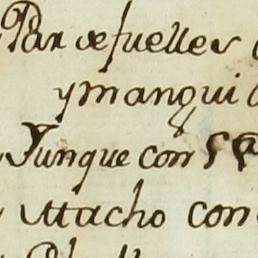 Par de fuelles
y manqui
Yunque con
Macho con